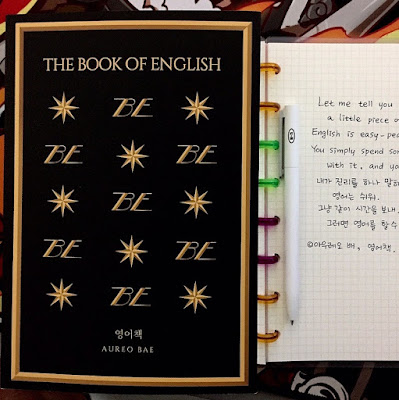 THE BOOK OF ENGLISH
BE
BE BE
BE
BE BE
BE
영어책
AUREO BAE
Let me tell you
a little piece o
English is easy-pea
You simply spend som
with it, and yo
내가 진리를 하나 말하
영어는 쉬워.
그냥 같이 시간을 보내.
그러면 영어를 할 수
©아우레오 배, 영어책.